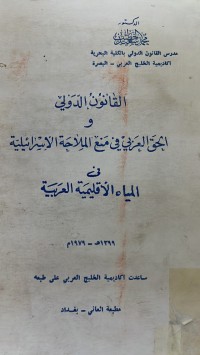 الدكتور
مدرس القانون الدولي بالكلية البحرية
اكاديمية الخليج العربي - البصرة
القانون الدولي
و
الحق العربي في منع الملاحة الاسرائيلية
في
المياه الاقليمية العربية
١٣٩٩هـ - ١٩٧٩م
ساعدت اكاديمية الخليج العربي على طبعه
مطبعة العاني - بغداد